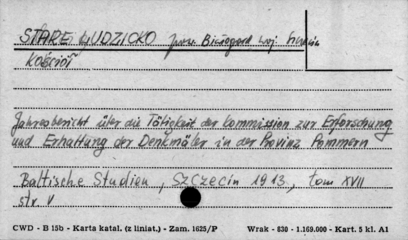 STARE LUDZICKO pow. Białogard woj.
Kościół
Jahresbericht über die Tätigkeit der Kommission zur Erforschung
und Erhaltung der Denkmäler in der Provinz Pommern
Baltische Studien, Szczecin 1913, tom XVII
str. V
CWD - B 15b - Karta katal. (z liniat.) - Zam. 1625/P Wrak - 630 - 1.169.000 - Kart. 5 kl. A1